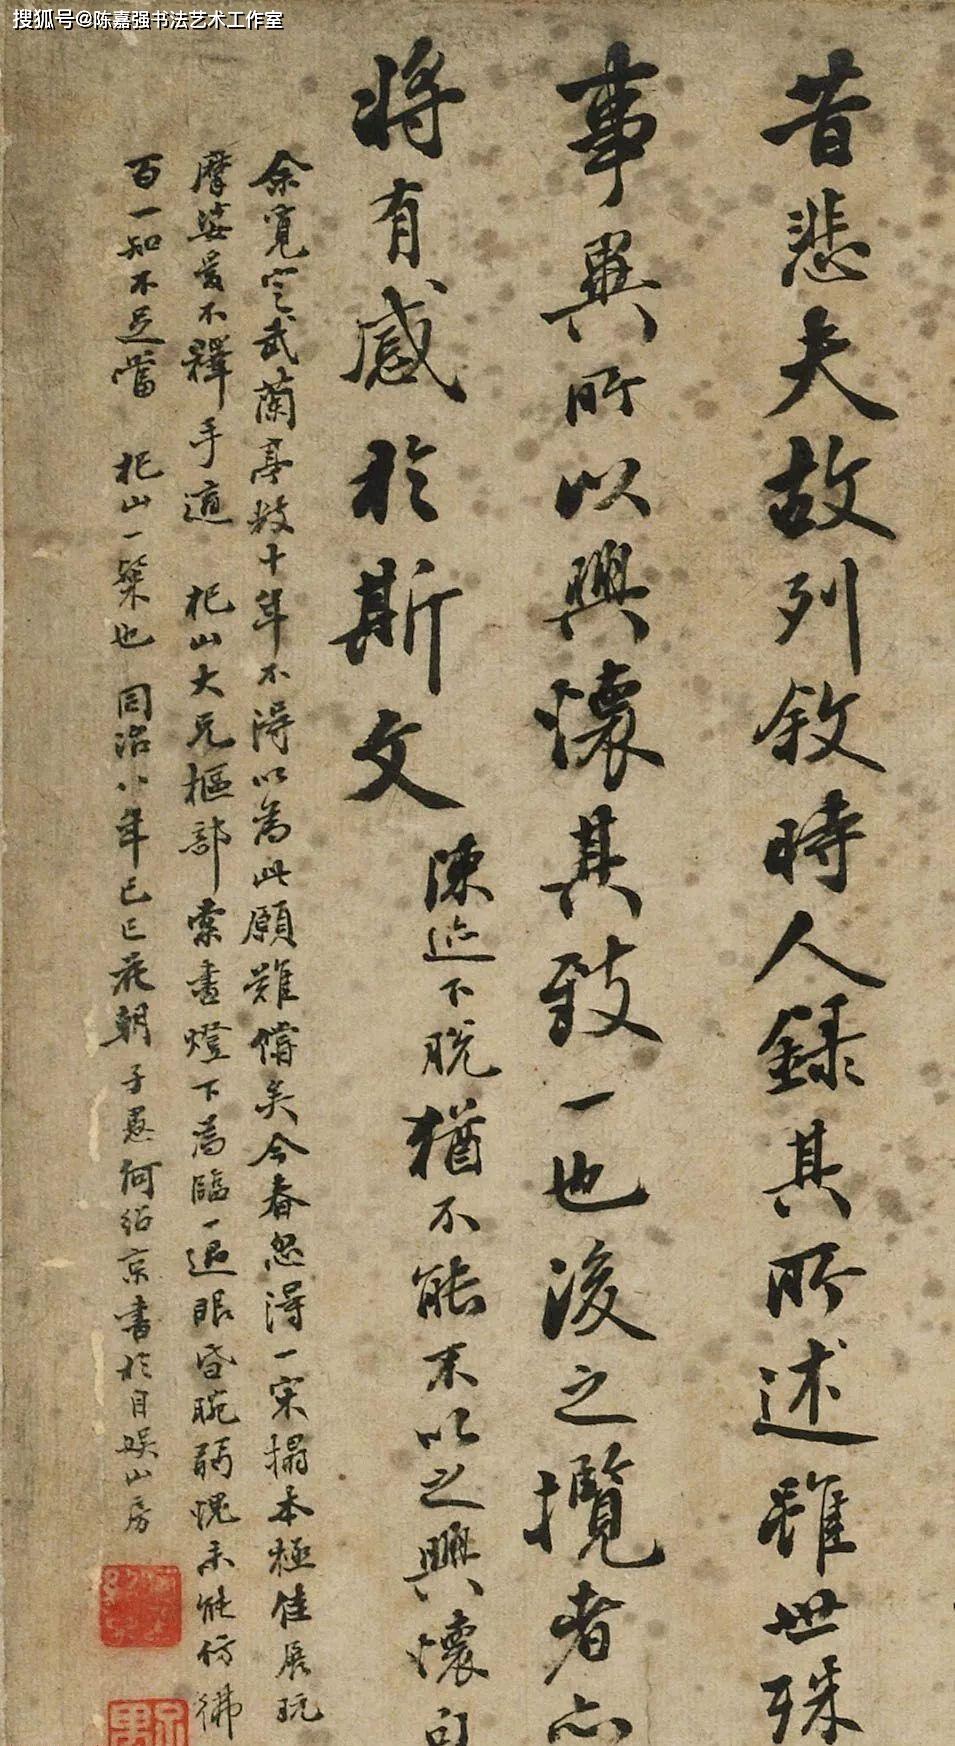 搜狐号@陈嘉强书法艺术工作室
昔悲夫故列敘時人錄其所述雖世殊
事異所以興懷其致一也後之攬者亦
將有感於斯文
陳迹下脫猶不能不以之興懷句
余覓定武蘭亭數十年不得以為此願難償矣今春忽得一宋搨本極佳展玩
摩娑愛不釋手適 杞山大兄樞部索書燈下為臨一過眼昏腕弱愧未能仿彿
百一知不足當 杞山一粲也 同治八年己巳花朝子愚何紹京書於自娛山房